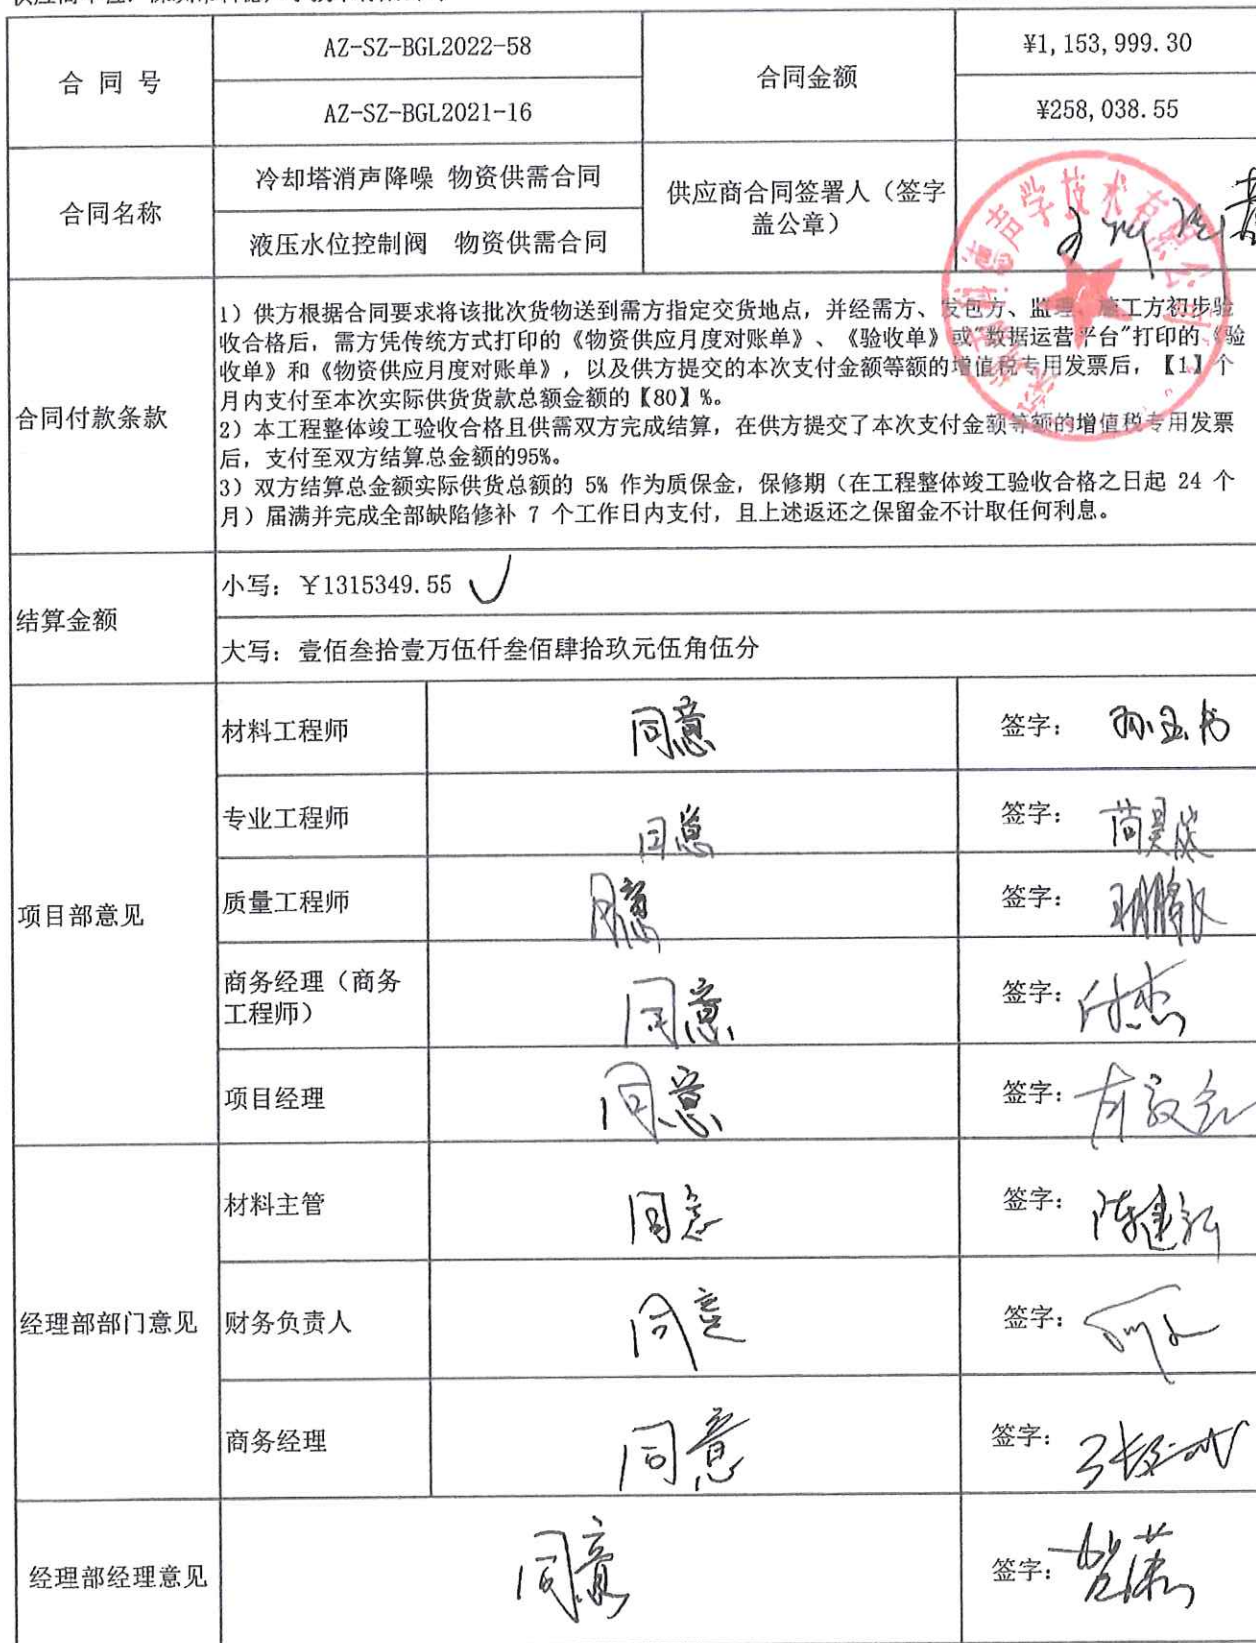 合 同 号
AZ-SZ-BGL2022-58
合同金额
¥1,153,999.30
AZ-SZ-BGL2021-16
¥258,038.55
合同名称
冷却塔消声降噪 物资供需合同
供应商合同签署人（签字
盖公章）
液压水位控制阀 物资供需合同
声学技术有限公司
合同付款条款
1）供方根据合同要求将该批次货物送到需方指定交货地点，并经需方、发包方、监理、施工方初步验
收合格后，需方凭传统方式打印的《物资供应月度对账单》、《验收单》或"数据运营平台"打印的《验
收单》和《物资供应月度对账单》，以及供方提交的本次支付金额等额的增值税专用发票后，【1】个
月内支付至本次实际供货货款总额金额的【80】%。
2）本工程整体竣工验收合格且供需双方完成结算，在供方提交了本次支付金额等额的增值税专用发票
后，支付至双方结算总金额的95%。
3）双方结算总金额实际供货总额的 5% 作为质保金，保修期（在工程整体竣工验收合格之日起 24 个
月）届满并完成全部缺陷修补 7 个工作日内支付，且上述返还之保留金不计取任何利息。
结算金额
小写：￥1315349.55
大写：壹佰叁拾壹万伍仟叁佰肆拾玖元伍角伍分
项目部意见
材料工程师
同意
签字：
专业工程师
同意
签字：
质量工程师
同意
签字：
商务经理（商务
工程师）
同意
签字：付杰
项目经理
同意
签字：
经理部部门意见
材料主管
同意
签字：
财务负责人
同意
签字：
商务经理
同意
签字：
经理部经理意见
同意
签字：